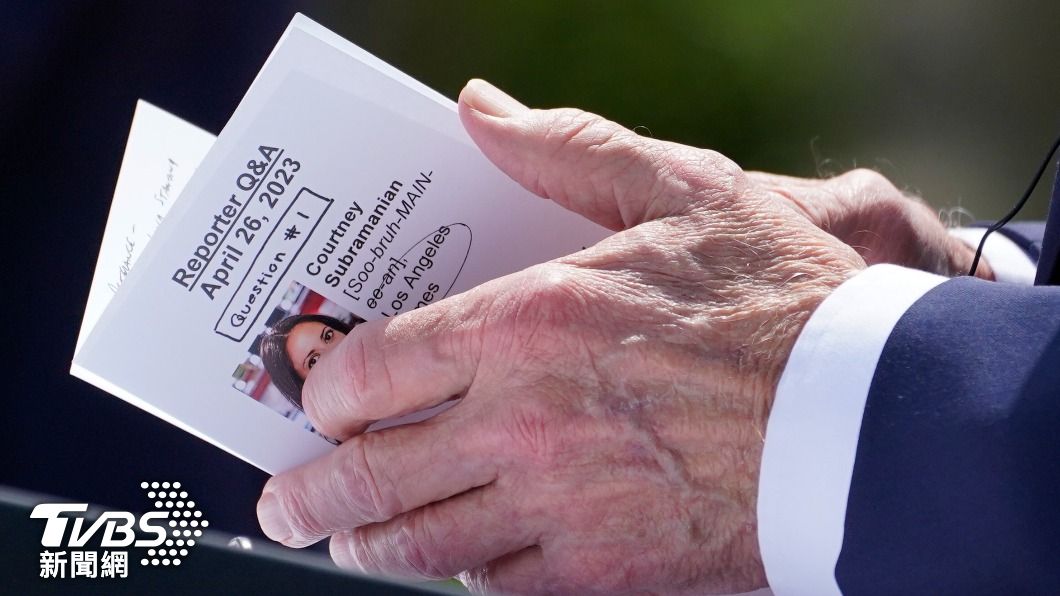 Reporter Q&A
April 26, 2023
Question #1
Courtney
Subramanian
[Soo-bruh-MAIN-
ee-an],
Los Angeles
TVBS
新聞網